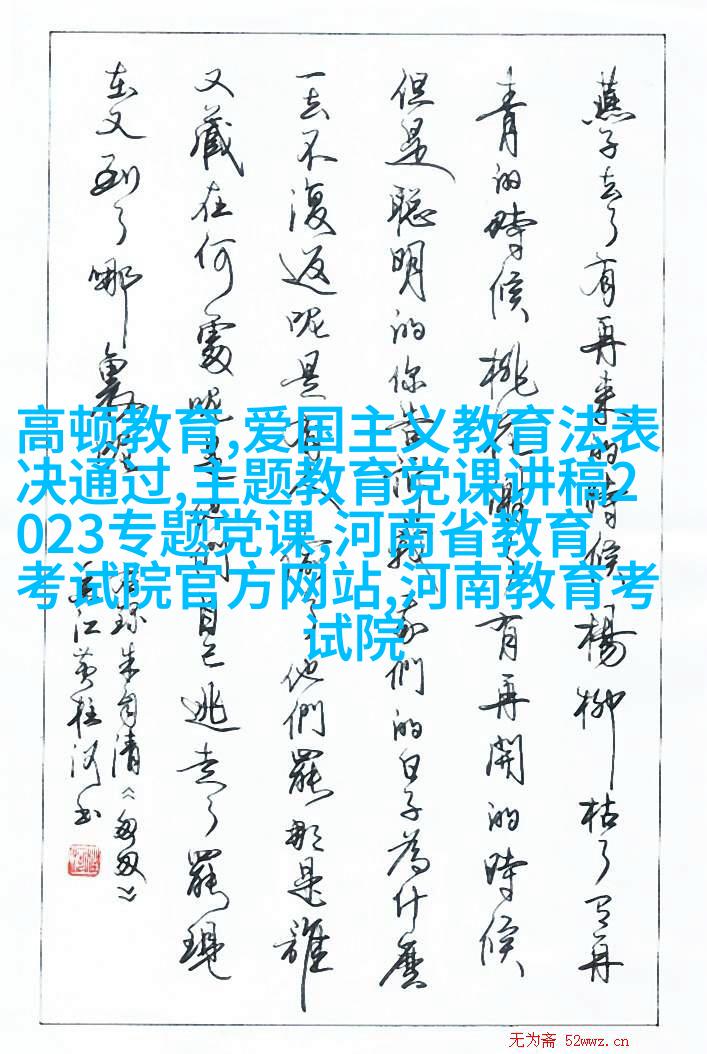 燕子去了有再来的時候楊柳枯了有再
青的時候桃花謝了有再開的時候
但是聪明的你告訴我我們的日子為什麽
一去不復返呢是有人偷了他們罷那是誰
又藏在何處呢是他們自己逃走了罷現
在又到了哪裏呢
朱自清《匆匆》
江黄柱河书
高顿教育,爱国主义教育法表
决通过,主题教育党课讲稿2
023专题党课,河南省教育
考试院官方网站,河南教育考
试院
无为斋 52wwz.cn